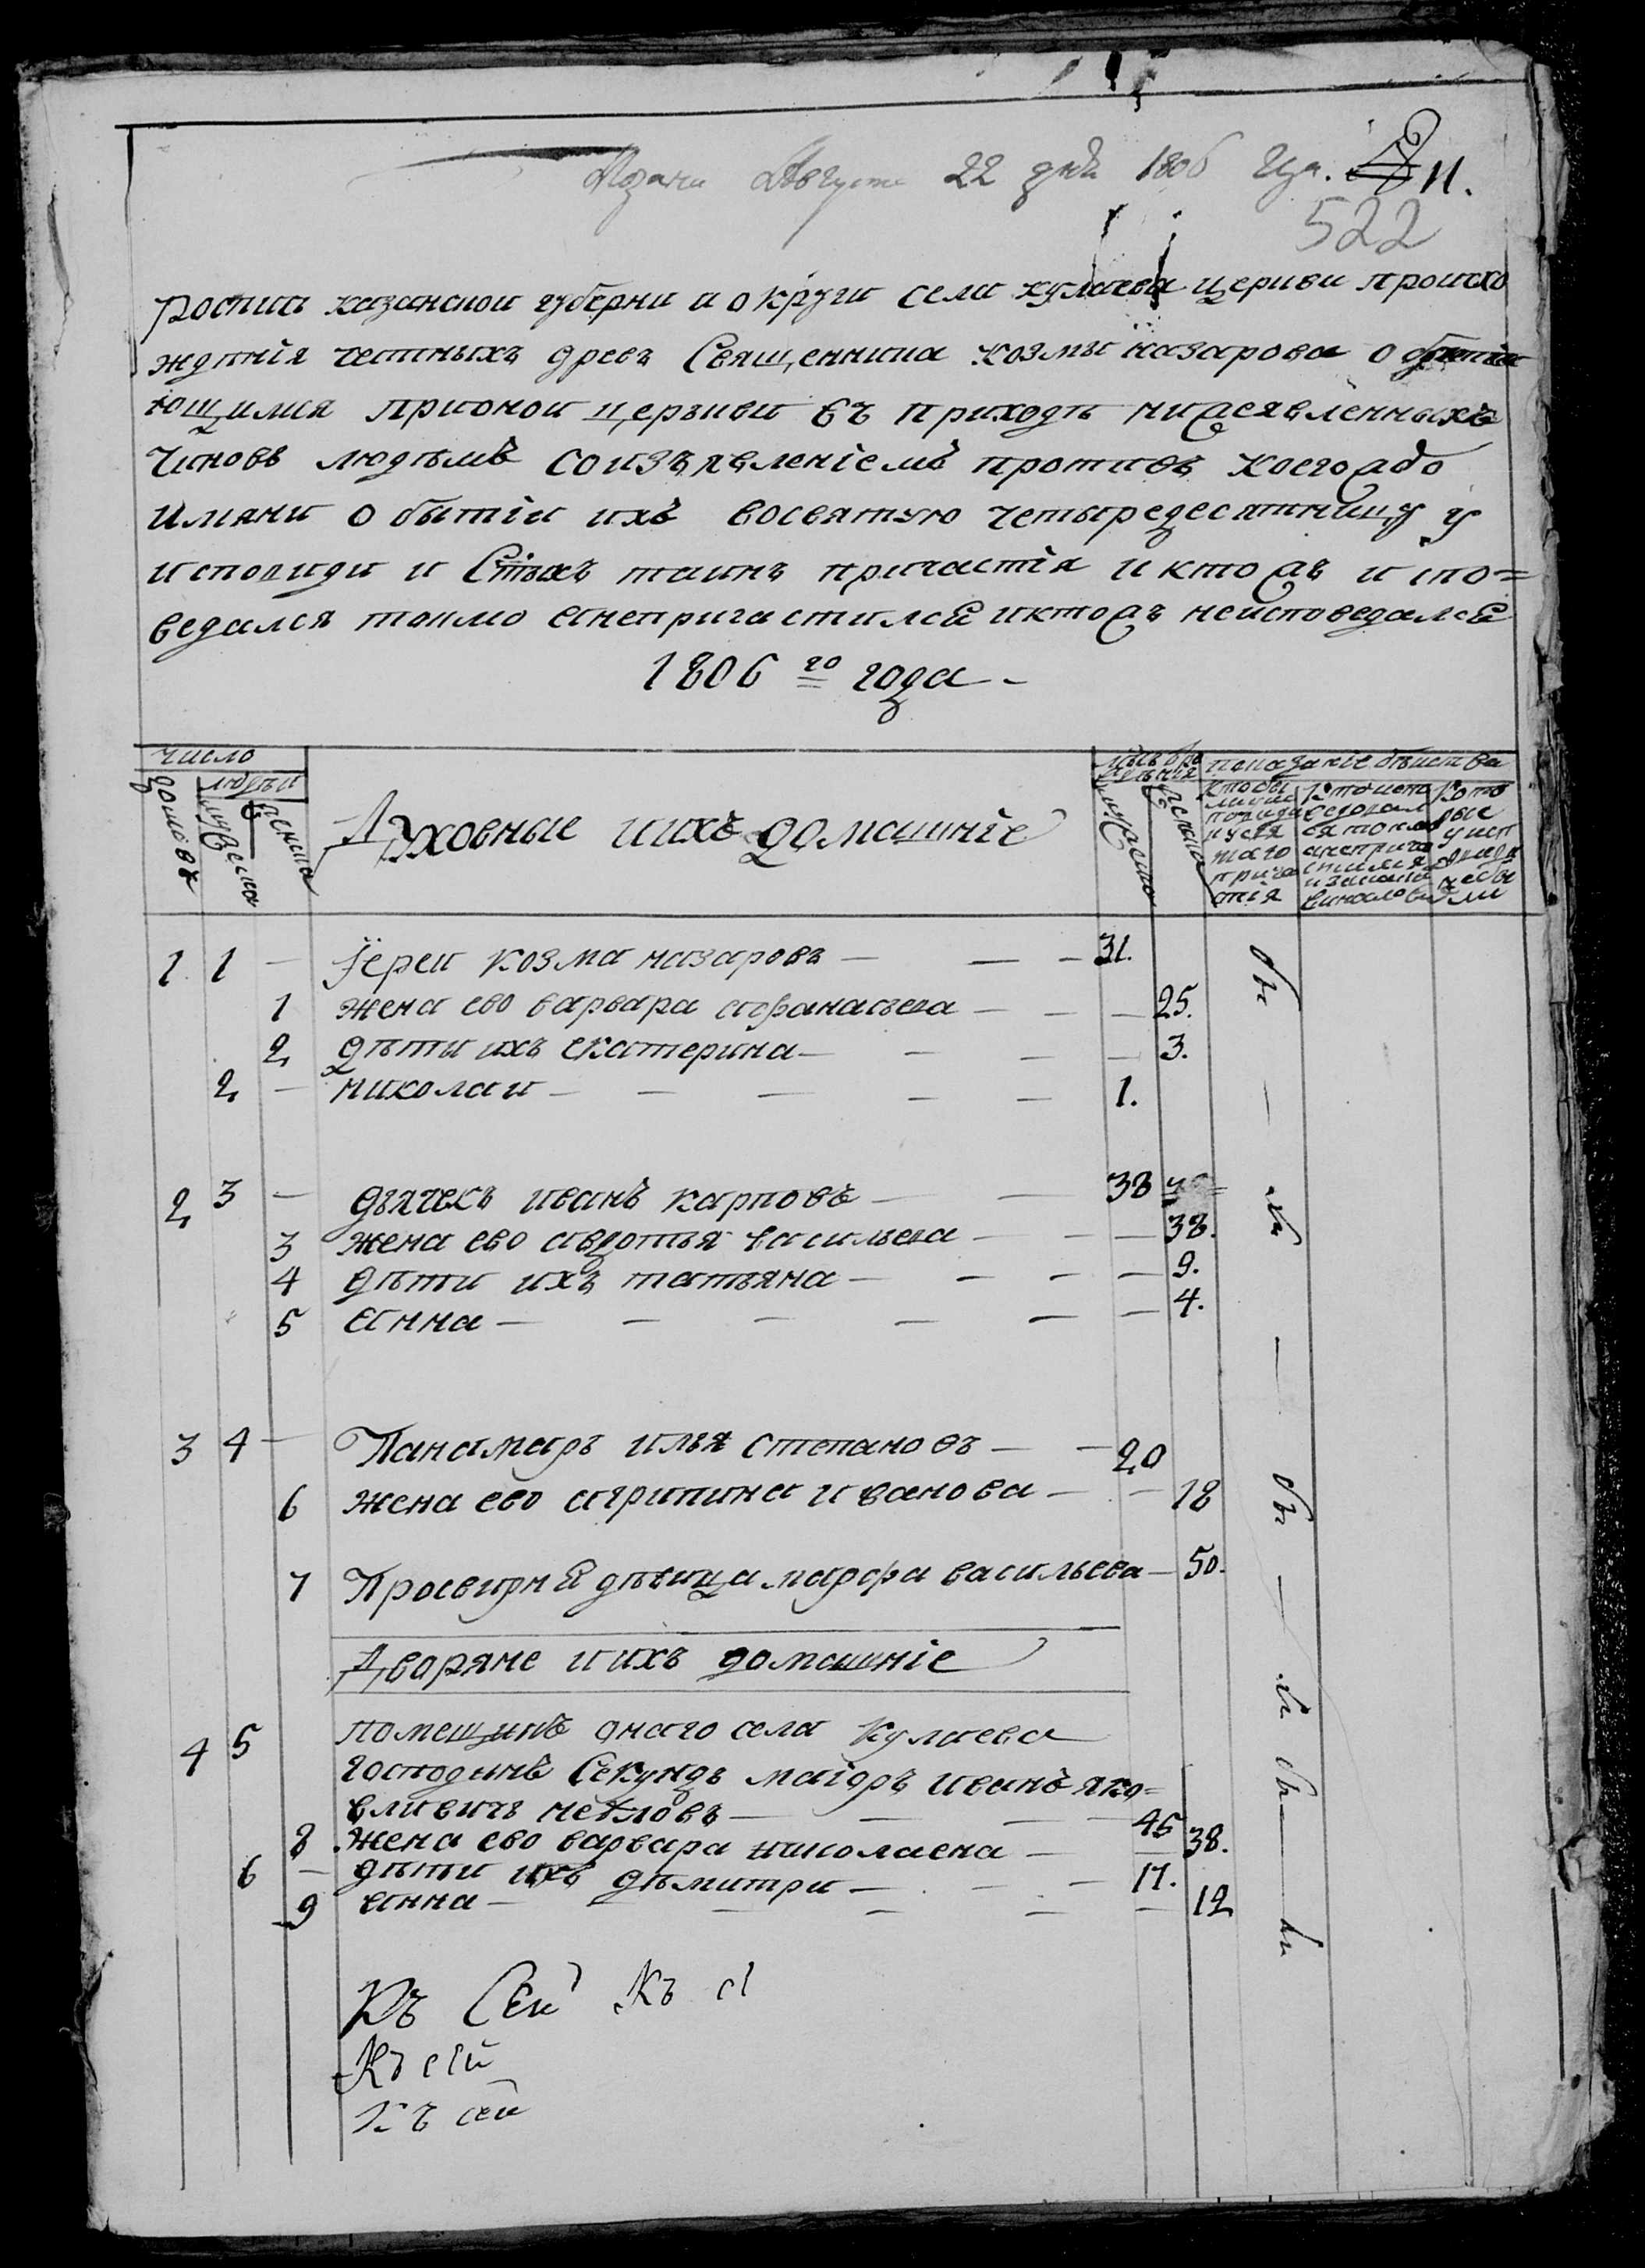 Августа 22 дня 1806 года. 11.
522
Роспись казанской губерни и округи села кулаева церкви происхо
ждения честныхъ древъ Священника козмы назарова о обрета
ющимся прионои церькви въ приходѣ нижеявленныхъ
чиновъ людѣмъ соизъявлениемъ противъ коегождо
имяни о бытіи ихъ восвятую четыредесятницу у
исповиди и Стыхъ таинъ причастія и ктожъ испо=
ведался токмо анепричастился иктожъ неисповедался
1806 го года -
число
людей
домовъ
мужеска
женска
Духовные иихъ домашніе
показание бытства
мужеска
женска
1. 1 — Їереи козма назаровъ — 31.
1 жена ево варвара афанасьева — 25.
2 дѣти ихъ екатерина — 3.
2 — николаи — 1.
2 3 — дьячекъ иванъ карповъ — 38
3 жена ево авдотья васильева — 38.
4 дѣти ихъ татьяна — 9.
5 анна — 4.
3 4 — Панамарь илья степановъ — 20
6 жена ево агрипина иванова — 18
7 Просвирня дѣвица марфа васильева — 50.
Дваряне иихъ домашніе
4 5 помещикъ онаго села Кулаева
господинъ Секундъ маіоръ иванъ яко=
вливичь — 45
8 жена ево варвара николаена — 38.
6 — дѣти ихъ дѣмитри — 17.
9 анна — 12
Къ Сей Къ с
Къ сей
Къ сей